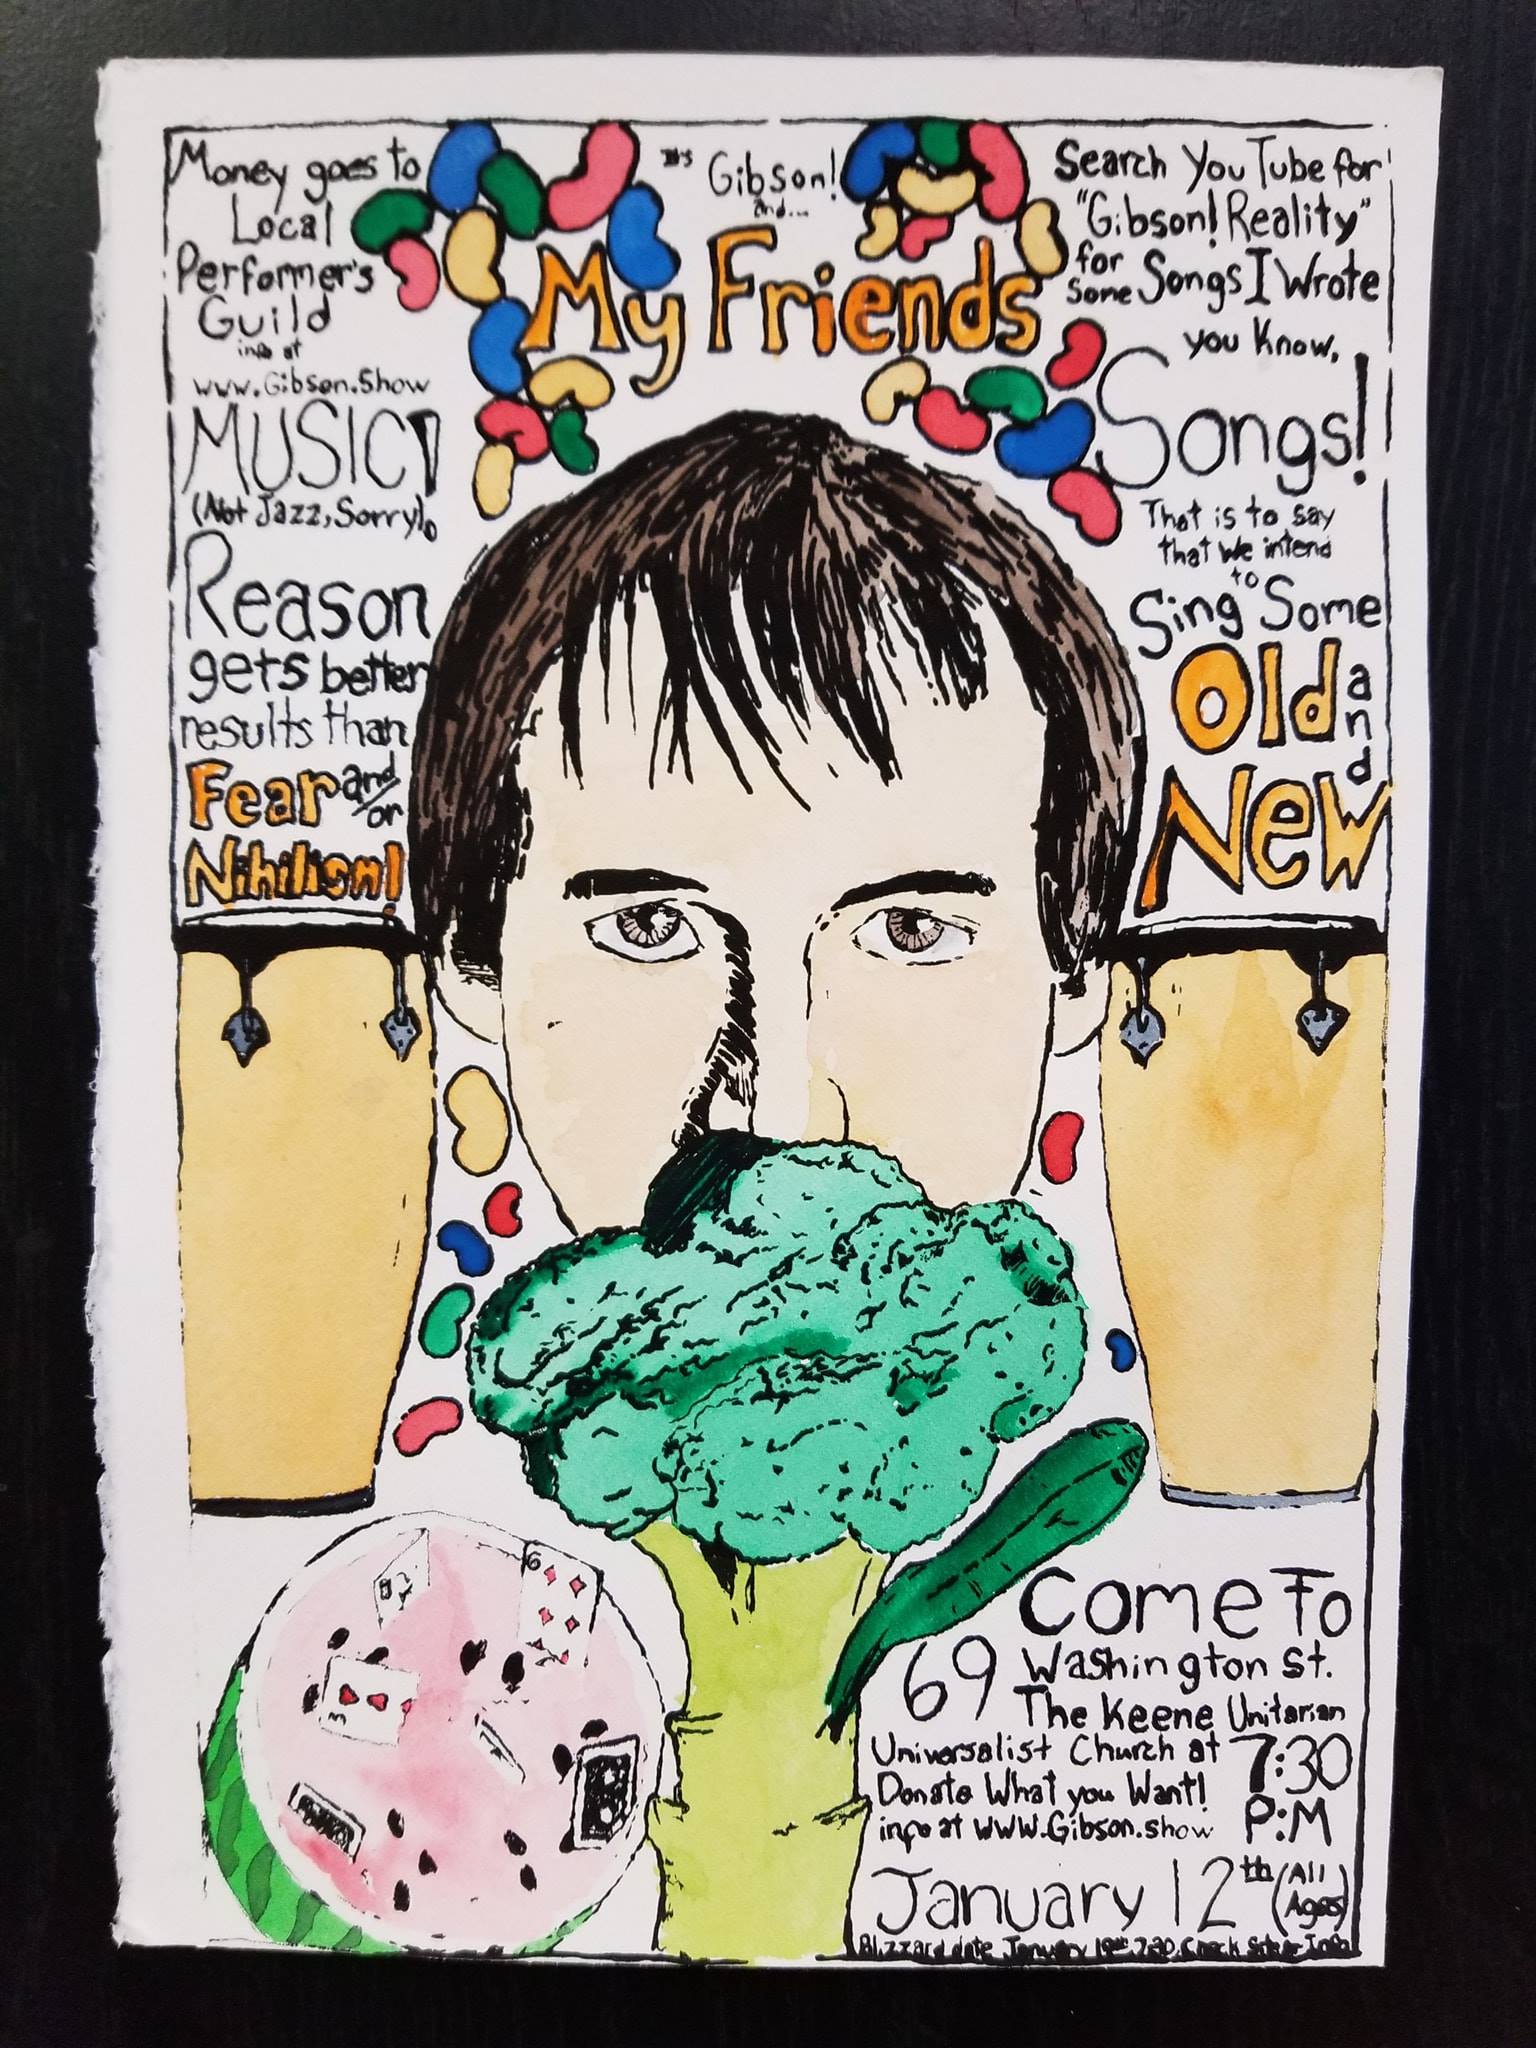 Money goes to
Local
Performer's
Guild
info at
www.Gibson.Show
MUSIC!
(Not Jazz, Sorry).
Reason
gets better
results than
Fear and/or
Nihilism!
It's Gibson!
and...
My Friends
Search YouTube for
"Gibson! Reality"
for
some Songs I Wrote
you know,
Songs!
That is to say
that we intend
to
Sing Some
Old and
New
6
3
Come To
69 Washington St.
The Keene Unitarian
Universalist Church at 7:30
Donate What you Want! P:M
info at WWW.Gibson.show
January 12th (All
Ages)
Blizzard date January 19th, 7:30, Check Site for Info